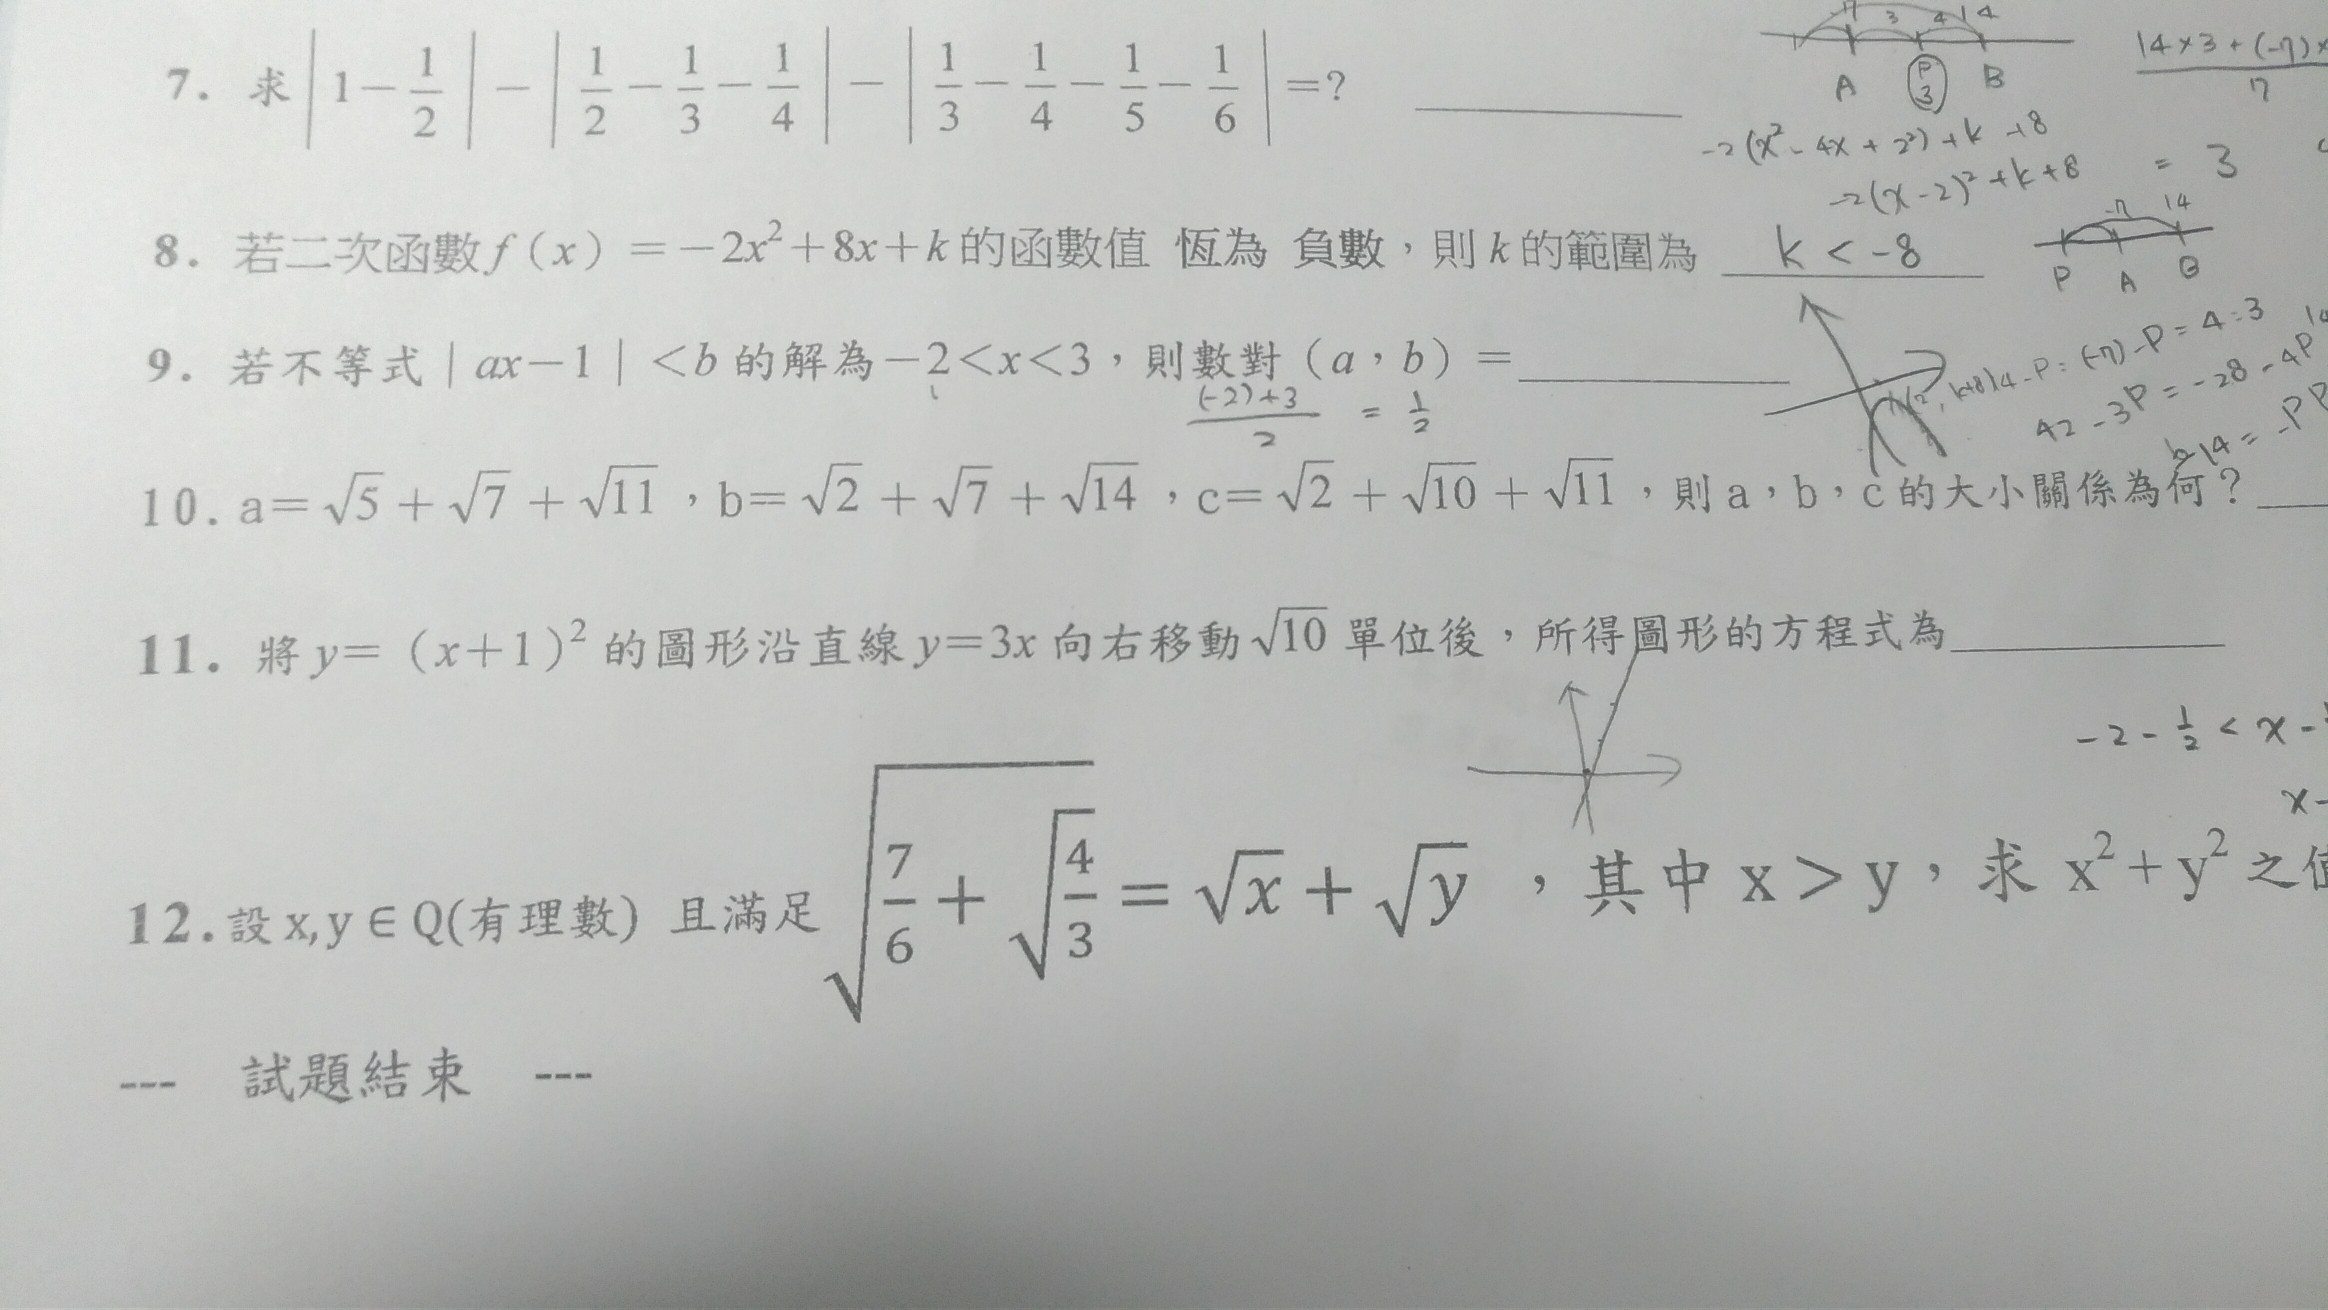 7. 求 |1－1/2|－|1/2－1/3－1/4|－|1/3－1/4－1/5－1/6|=?
14×3+(-7)×
7
= 3
-7 3 4 14
A P 3 B
-2(x²-4x+2²)+k+8
-2(x-2)²+k+8
8. 若二次函數 f（x）＝－2x²＋8x＋k 的函數值 恆為 負數，則 k 的範圍為 k < -8
-7 14
P A B
9. 若不等式｜ax－1｜＜b 的解為－2＜x＜3，則數對（a，b）＝
(-2)+3/2 = 1/2
14-P:(-7)-P=4:3
42-3P=-28-4P
14=-P
10. a＝√5＋√7＋√11，b＝√2＋√7＋√14，c＝√2＋√10＋√11，則 a，b，c 的大小關係為何？
11. 將 y＝（x＋1）² 的圖形沿直線 y＝3x 向右移動√10 單位後，所得圖形的方程式為
-2-1/2<x-
x-
12.設 x,y∈Q(有理數) 且滿足 √(7/6＋√(4/3))＝√x＋√y，其中 x＞y，求 x²＋y² 之
--- 試題結束 ---